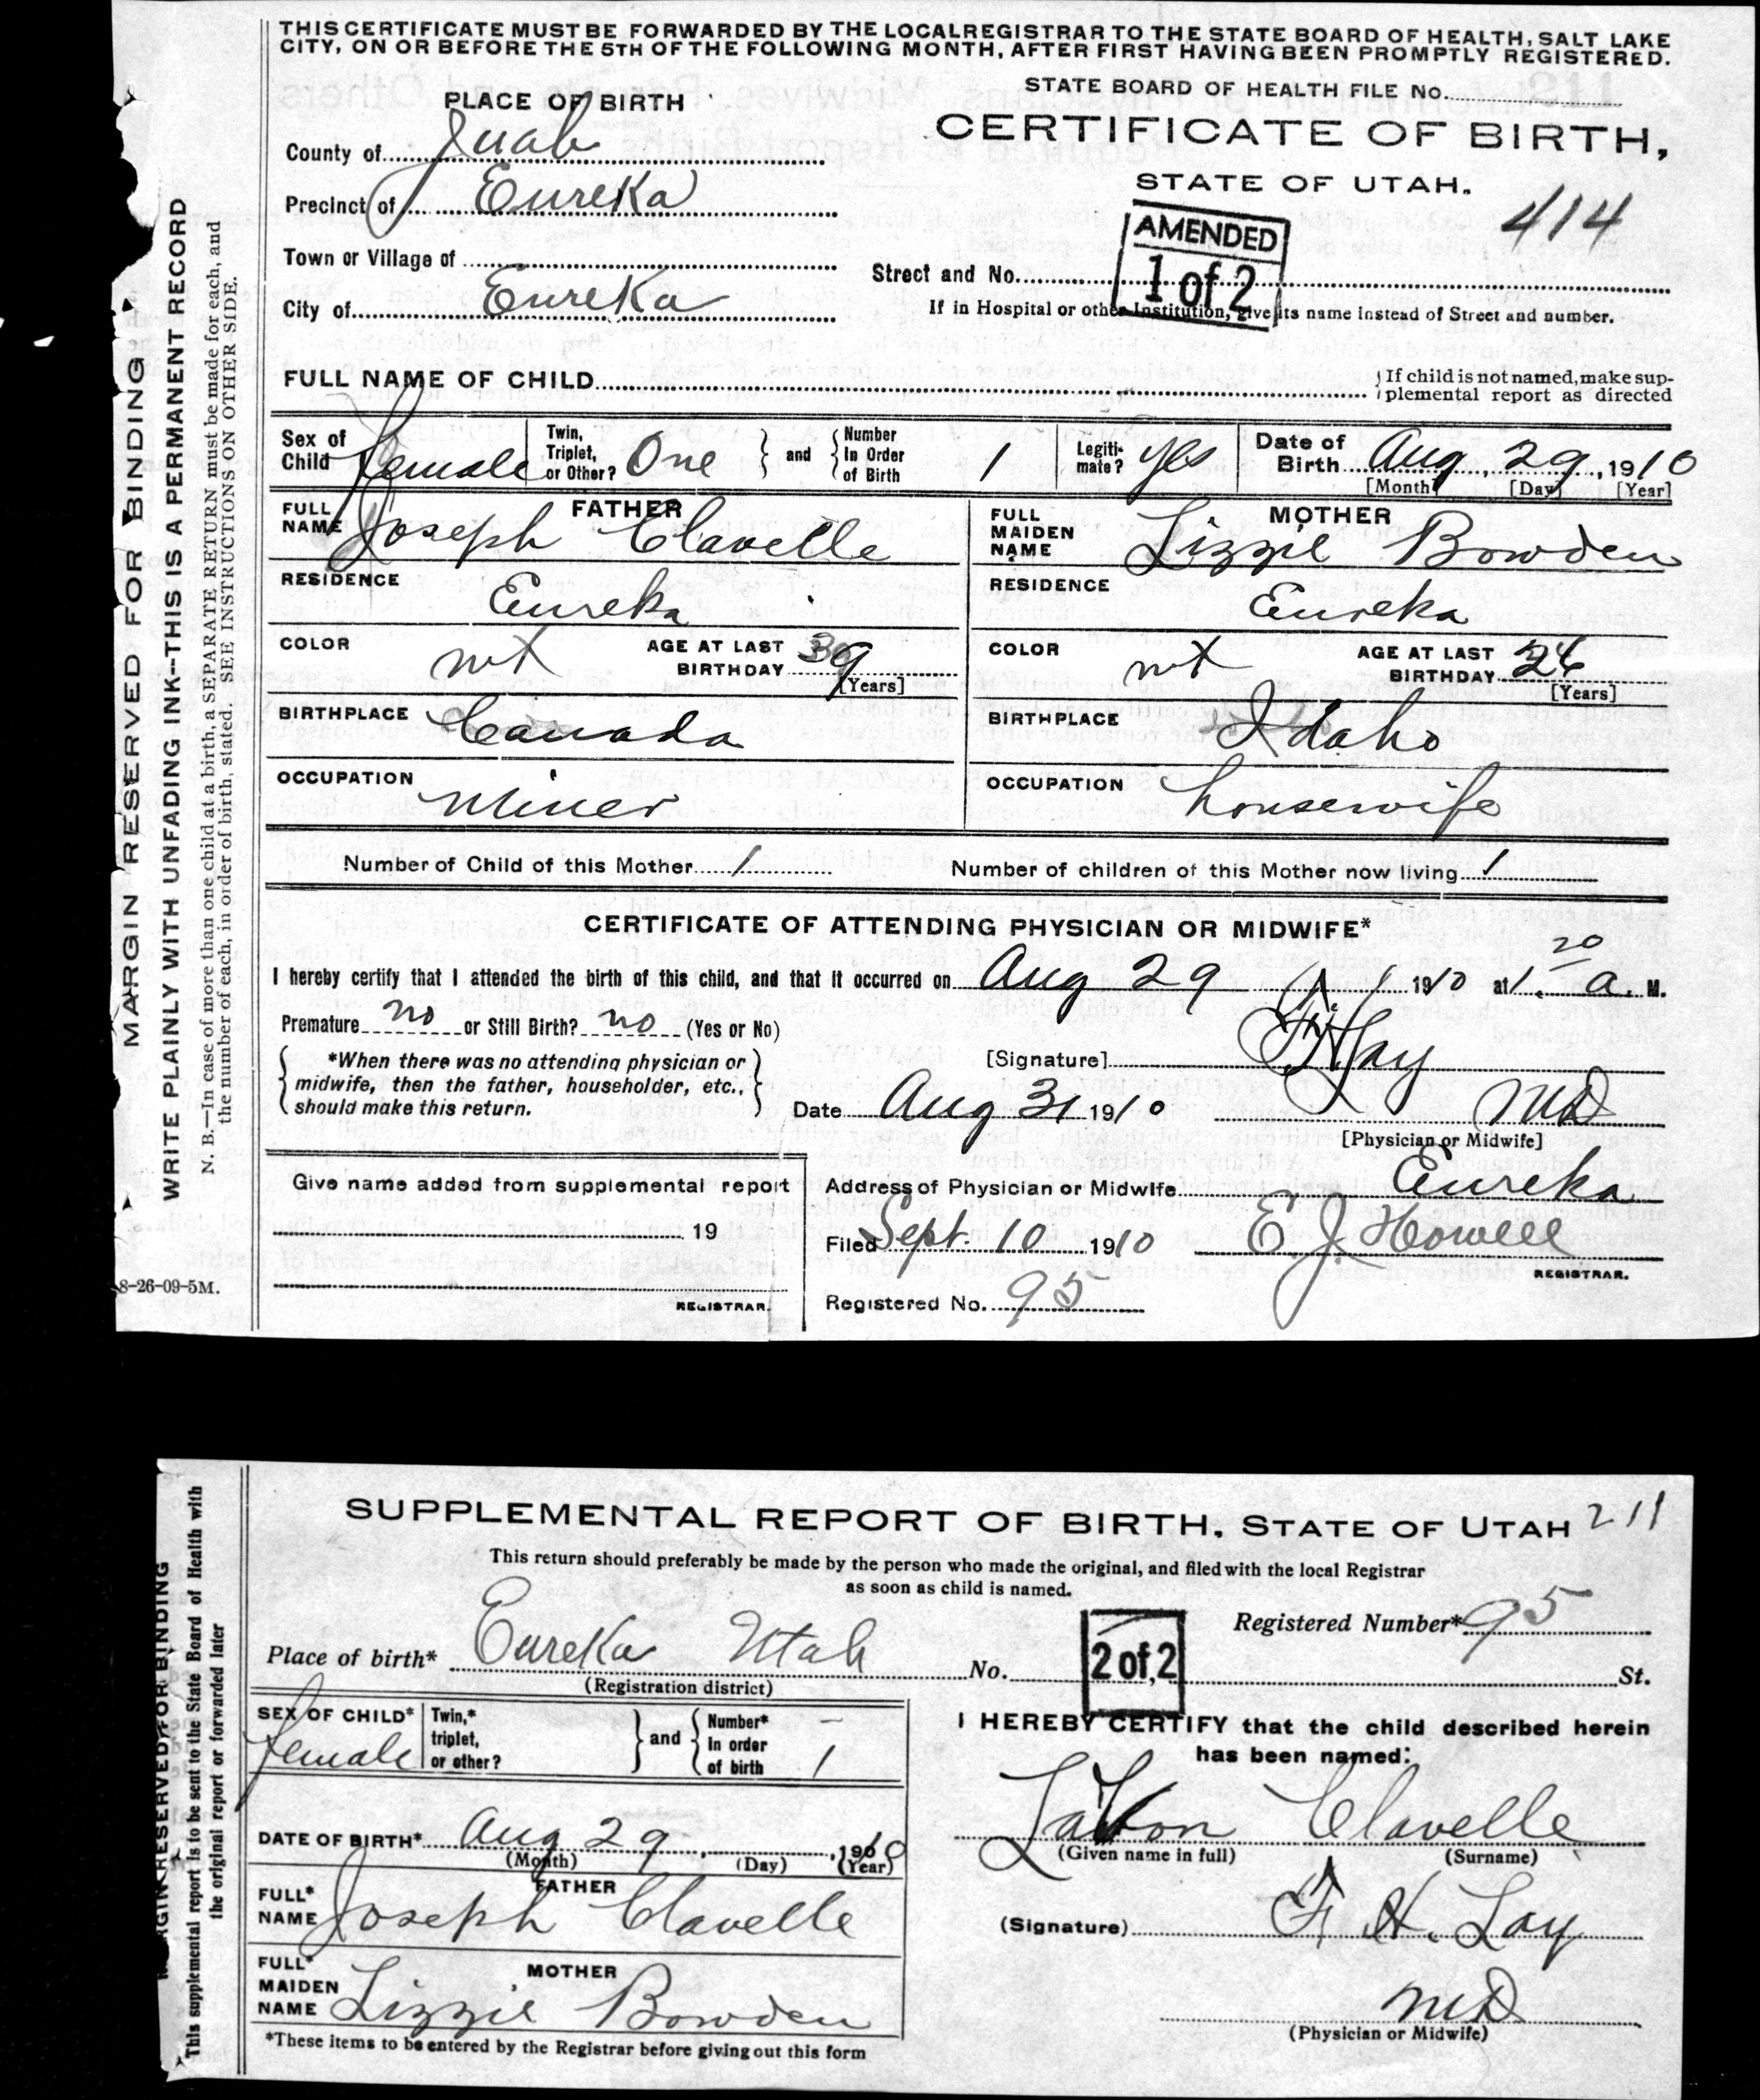 THIS CERTIFICATE MUST BE FORWARDED BY THE LOCAL REGISTRAR TO THE STATE BOARD OF HEALTH, SALT LAKE
CITY, ON OR BEFORE THE 5TH OF THE FOLLOWING MONTH, AFTER FIRST HAVING BEEN PROMPTLY REGISTERED.
PLACE OF BIRTH
STATE BOARD OF HEALTH FILE No.
County of Juab
CERTIFICATE OF BIRTH,
Precinct of Eureka
STATE OF UTAH.
414
AMENDED
1 of 2
Town or Village of
Street and No.
City of Eureka
If in Hospital or other Institution, give its name instead of Street and number.
FULL NAME OF CHILD
If child is not named, make sup-
plemental report as directed
Sex of Child female
Twin, Triplet, or Other? One
and
Number In Order of Birth 1
Legiti-mate? yes
Date of Birth Aug, 29, 1910
[Month] [Day] [Year]
FATHER
FULL NAME Joseph Clavelle
MOTHER
FULL MAIDEN NAME Lizzie Bowden
RESIDENCE Eureka
RESIDENCE Eureka
COLOR wt AGE AT LAST BIRTHDAY 39 [Years]
COLOR wt AGE AT LAST BIRTHDAY [Years]
BIRTHPLACE Canada
BIRTHPLACE Idaho
OCCUPATION Miner
OCCUPATION housewife
Number of Child of this Mother 1
Number of children of this Mother now living 1
CERTIFICATE OF ATTENDING PHYSICIAN OR MIDWIFE*
I hereby certify that I attended the birth of this child, and that it occurred on Aug 29 1910 at 1. 20 a. M.
Premature no or Still Birth? no (Yes or No)
*When there was no attending physician or
midwife, then the father, householder, etc.,
should make this return.
[Signature] F. H. Lay
Date Aug 31 1910 MD
[Physician or Midwife]
Give name added from supplemental report
Address of Physician or Midwife Eureka
19
Filed Sept. 10 1910 E. J. Howell
REGISTRAR.
REGISTRAR.
Registered No. 95
MARGIN RESERVED FOR BINDING
WRITE PLAINLY WITH UNFADING INK--THIS IS A PERMANENT RECORD
N. B.—In case of more than one child at a birth, a SEPARATE RETURN must be made for each, and
the number of each, in order of birth, stated. SEE INSTRUCTIONS ON OTHER SIDE.
8-26-09-5M.
SUPPLEMENTAL REPORT OF BIRTH, STATE OF UTAH 211
This return should preferably be made by the person who made the original, and filed with the local Registrar
as soon as child is named.
Registered Number* 95
Place of birth* Eureka Utah No. St.
(Registration district)
2 of 2
SEX OF CHILD* female
Twin,* triplet, or other?
and
Number* In order of birth 1
I HEREBY CERTIFY that the child described herein
has been named:
Clavelle
(Given name in full) (Surname)
DATE OF BIRTH* Aug 29, 1910
(Month) (Day) (Year)
FATHER
FULL* NAME Joseph Clavelle
(Signature) F. H. Lay
MOTHER
FULL* MAIDEN NAME Lizzie Bowden
MD
(Physician or Midwife)
*These items to be entered by the Registrar before giving out this form
MARGIN RESERVED FOR BINDING
This supplemental report is to be sent to the State Board of Health with
the original report or forwarded later